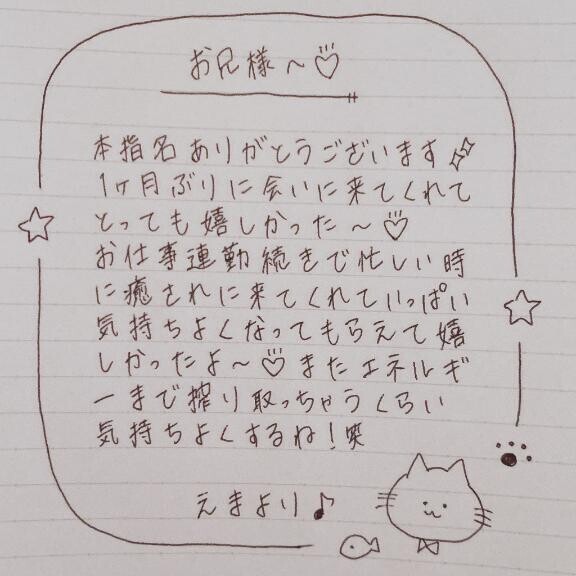 お兄様〜♡
本指名ありがとうございます✨
1ヶ月ぶりに会いに来てくれて
とっても嬉しかった〜♡
お仕事連勤続きで忙しい時
に癒されに来てくれていっぱい
気持ちよくなってもらえて嬉
しかったよ〜♡またエネルギ
ーまで搾り取っちゃうくらい
気持ちよくするね!笑
えまより♪